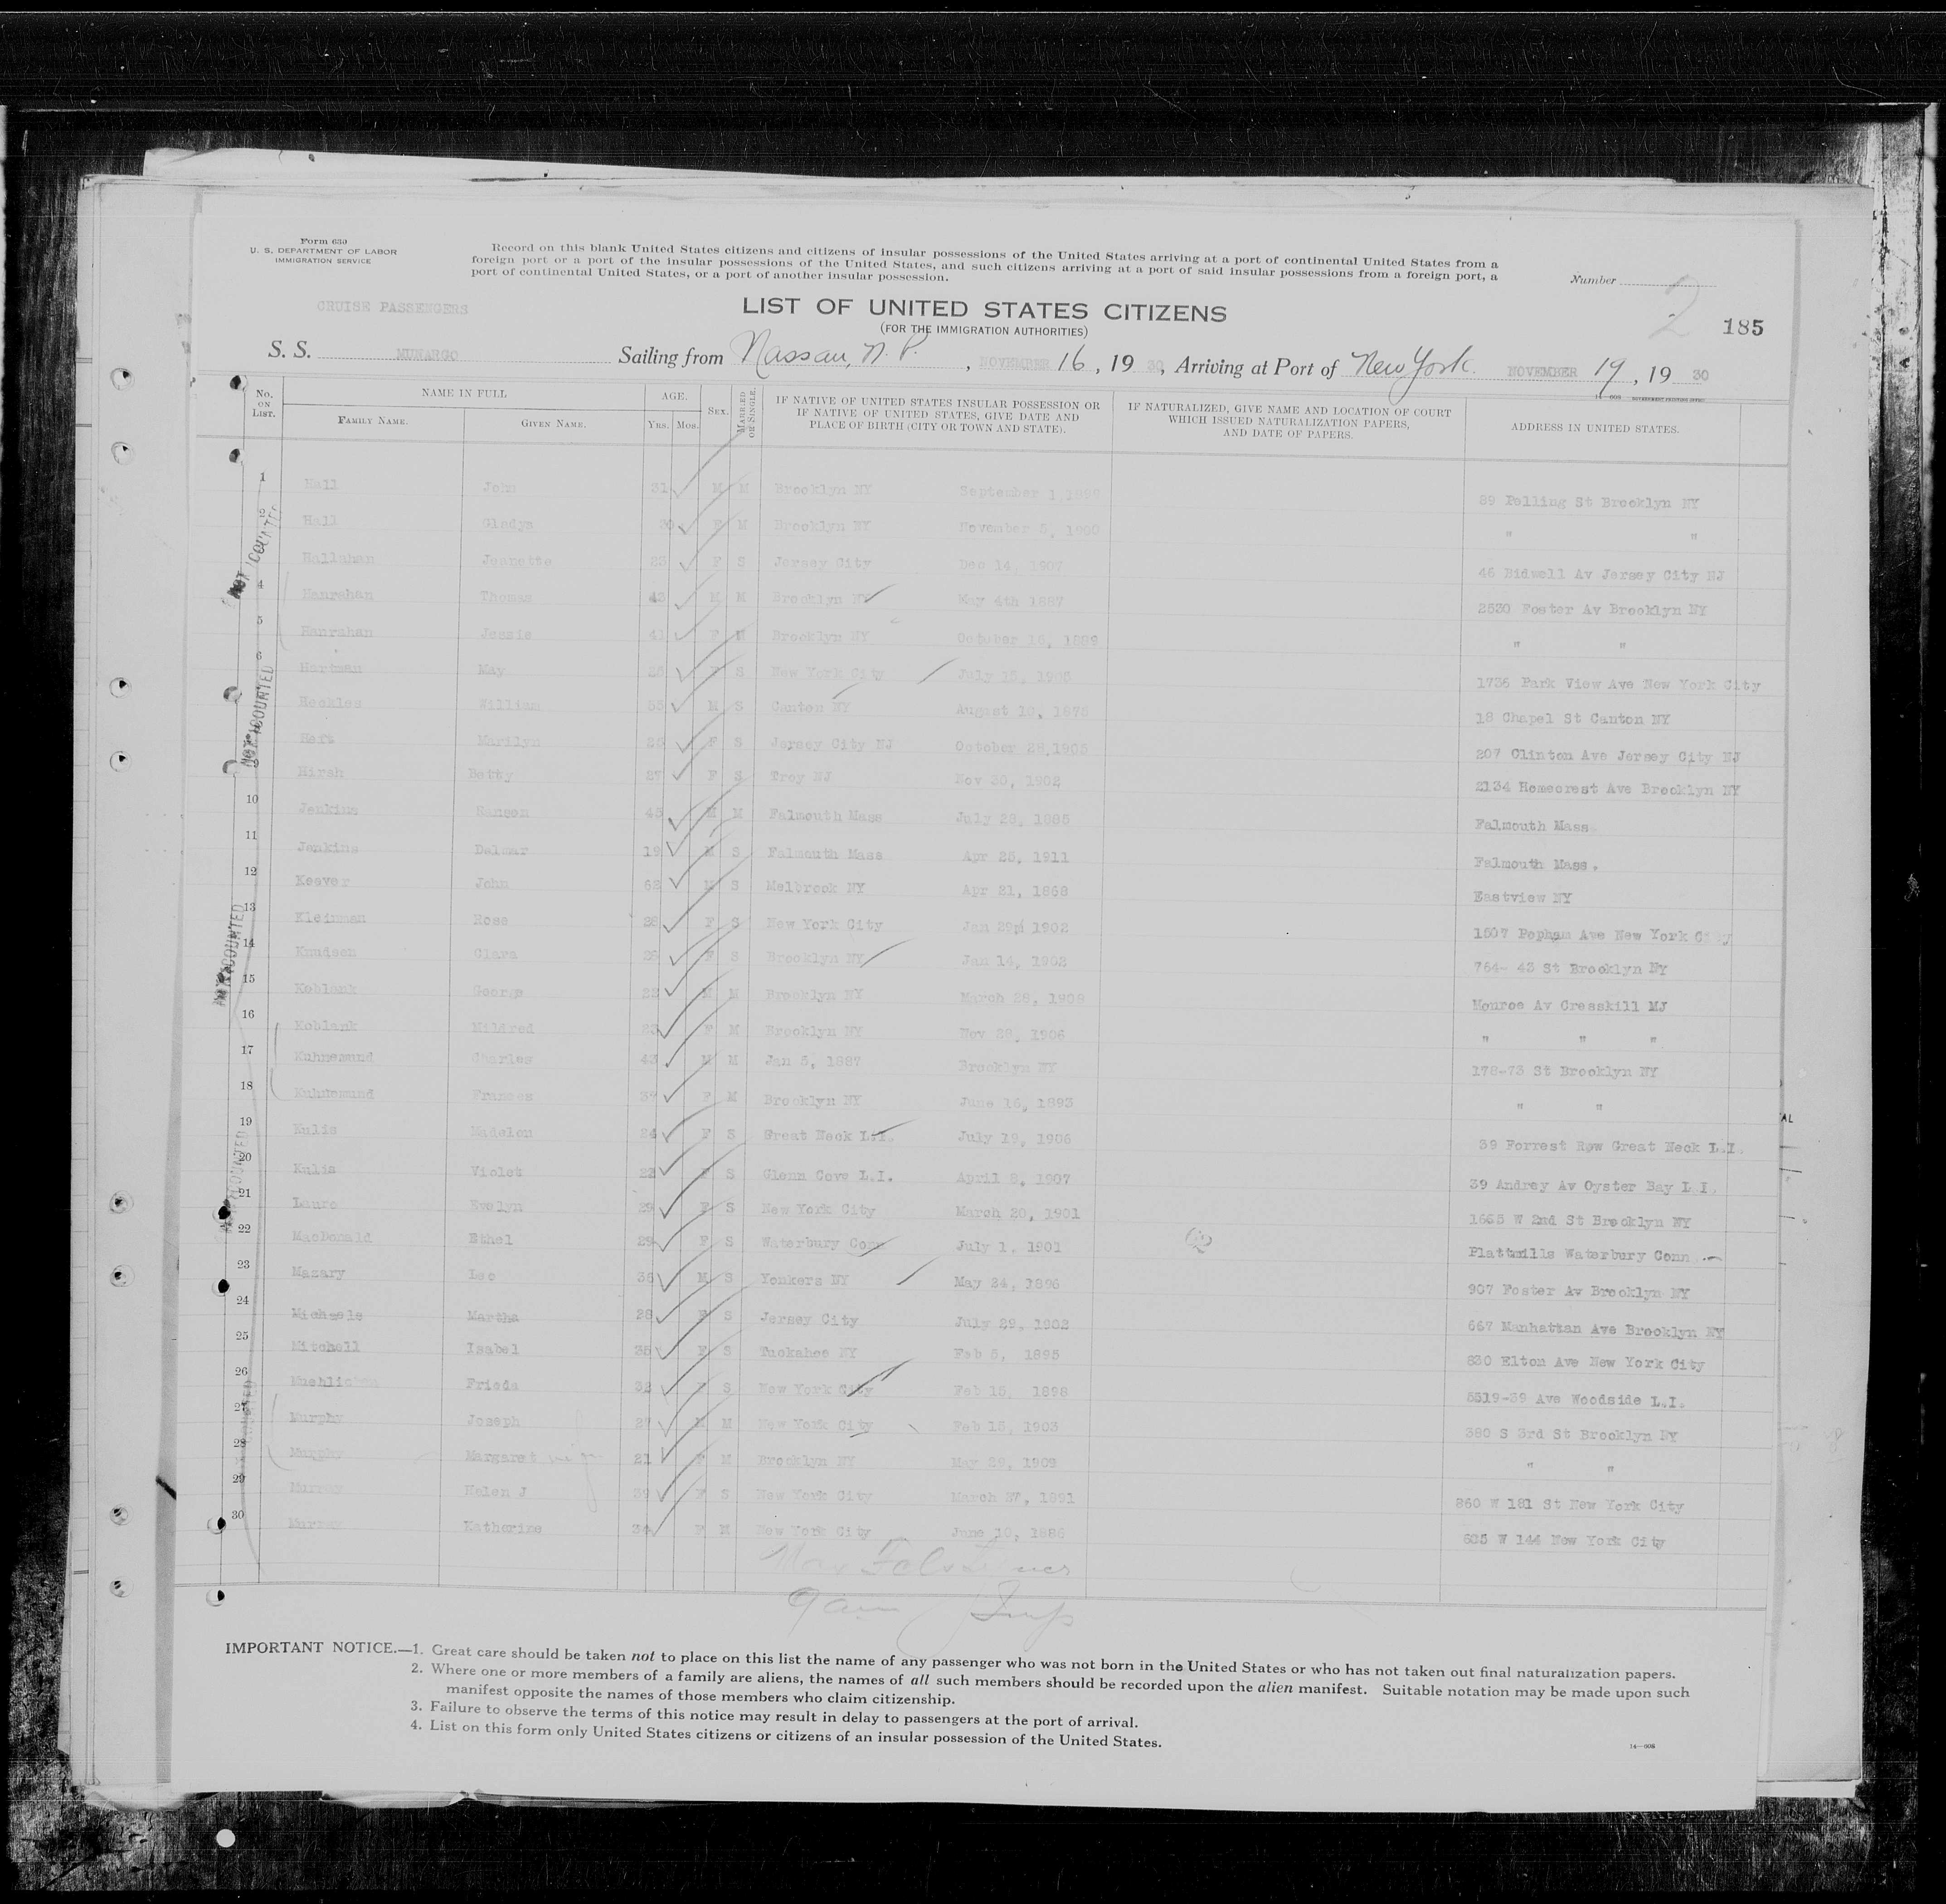 Form 630
U. S. DEPARTMENT OF LABOR
IMMIGRATION SERVICE
Record on this blank United States citizens and citizens of insular possessions of the United States arriving at a port of continental United States from a
foreign port or a port of the insular possessions of the United States, and such citizens arriving at a port of said insular possessions from a foreign port, a
port of continental United States, or a port of another insular possession.
Number
2
185
CRUISE PASSENGERS
LIST OF UNITED STATES CITIZENS
(FOR THE IMMIGRATION AUTHORITIES)
S. S. MUNARGO Sailing from Nassau, N. P., NOVEMBER 16, 19 30, Arriving at Port of New York. NOVEMBER 19, 19 30
14—608 GOVERNMENT PRINTING OFFICE
No. ON LIST. NAME IN FULL FAMILY NAME. GIVEN NAME. AGE. YRS. MOS. SEX. MARRIED OR SINGLE. IF NATIVE OF UNITED STATES INSULAR POSSESSION OR IF NATIVE OF UNITED STATES, GIVE DATE AND PLACE OF BIRTH (CITY OR TOWN AND STATE). IF NATURALIZED, GIVE NAME AND LOCATION OF COURT WHICH ISSUED NATURALIZATION PAPERS, AND DATE OF PAPERS. ADDRESS IN UNITED STATES.
1 Hall John 31 M M Brooklyn NY September 1, 1899 89 Pelling St Brooklyn NY
Hall Gladys 30 F M Brooklyn NY November 5, 1900 " "
Hallahan Jeanette 23 F S Jersey City Dec 14, 1907 46 Bidwell Av Jersey City NJ
4 Hanrahan Thomas 43 M M Brooklyn NY May 4th 1887 2530 Foster Av Brooklyn NY
5 Hanrahan Jessie 41 F M Brooklyn NY October 16, 1889 " "
6 Hartman May 25 F S New York City July 15, 1905 1736 Park View Ave New York City
Heckles William 55 M S Canton NY August 10, 1875 18 Chapel St Canton NY
Heft Marilyn 25 F S Jersey City NJ October 28,1905 207 Clinton Ave Jersey City NJ
Hirsh Betty 27 F S Troy NJ Nov 30, 1902 2134 Homecrest Ave Brooklyn NY
10 Jenkins Hanson 45 M M Falmouth Mass July 28, 1885 Falmouth Mass
11 Jenkins Delmar 19 M S Falmouth Mass Apr 25, 1911 Falmouth Mass.
12 Keever John 62 M S Melbrook NY Apr 21, 1868 Eastview NY
13 Kleinman Rose 28 F S New York City Jan 29, 1902 1507 Popham Ave New York City
14 Knudsen Clara 28 F S Brooklyn NY Jan 14, 1902 764- 43 St Brooklyn NY
15 Koblank George 22 M M Brooklyn NY March 28, 1908 Monroe Av Cresskill NJ
16 Koblank Mildred 23 F M Brooklyn NY Nov 28, 1906 " " "
17 Kuhnemund Charles 43 M M Jan 5, 1887 Brooklyn NY 178-73 St Brooklyn NY
18 Kuhnemund Frances 37 F M Brooklyn NY June 16, 1893 " "
19 Kulis Madelon 24 F S Great Neck L.I. July 19, 1906 39 Forrest Row Great Neck L.I.
20 Kulis Violet 22 F S Glenn Cove L.I. April 8, 1907 39 Andrey Av Oyster Bay L I.
21 Lauro Evelyn 29 F S New York City March 20, 1901 1665 W 2nd St Brooklyn NY
22 MacDonald Ethel 29 F S Waterbury Conn July 1, 1901 Plattmills Waterbury Conn.
23 Mazary Leo 36 M S Yonkers NY May 24, 1896 907 Foster Av Brooklyn NY
24 Michaels Martha 28 F S Jersey City July 29, 1902 667 Manhattan Ave Brooklyn NY
25 Mitchell Isabel 35 F S Tuckahoe NY Feb 5, 1895 830 Elton Ave New York City
26 Frieda 32 F S New York City Feb 15, 1898 5519-39 Ave Woodside L.I.
27 Murphy Joseph 27 M M New York City Feb 15, 1903 380 S 3rd St Brooklyn NY
28 Murphy Margaret wife 21 F M Brooklyn NY May 29, 1909 " "
29 Murray Helen J 39 F S New York City March 27, 1891 860 W 181 St New York City
30 Murray Katherine 34 F M New York City June 10, 1886 635 W 144 New York City
NOT COUNTED
NOT COUNTED
NOT COUNTED
NOT COUNTED
IMPORTANT NOTICE.—1. Great care should be taken not to place on this list the name of any passenger who was not born in the United States or who has not taken out final naturalization papers.
2. Where one or more members of a family are aliens, the names of all such members should be recorded upon the alien manifest. Suitable notation may be made upon such
manifest opposite the names of those members who claim citizenship.
3. Failure to observe the terms of this notice may result in delay to passengers at the port of arrival.
4. List on this form only United States citizens or citizens of an insular possession of the United States.
14—608